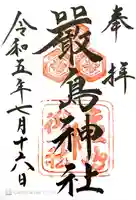 奉拝
嚴島神社
令和五年七月十六日